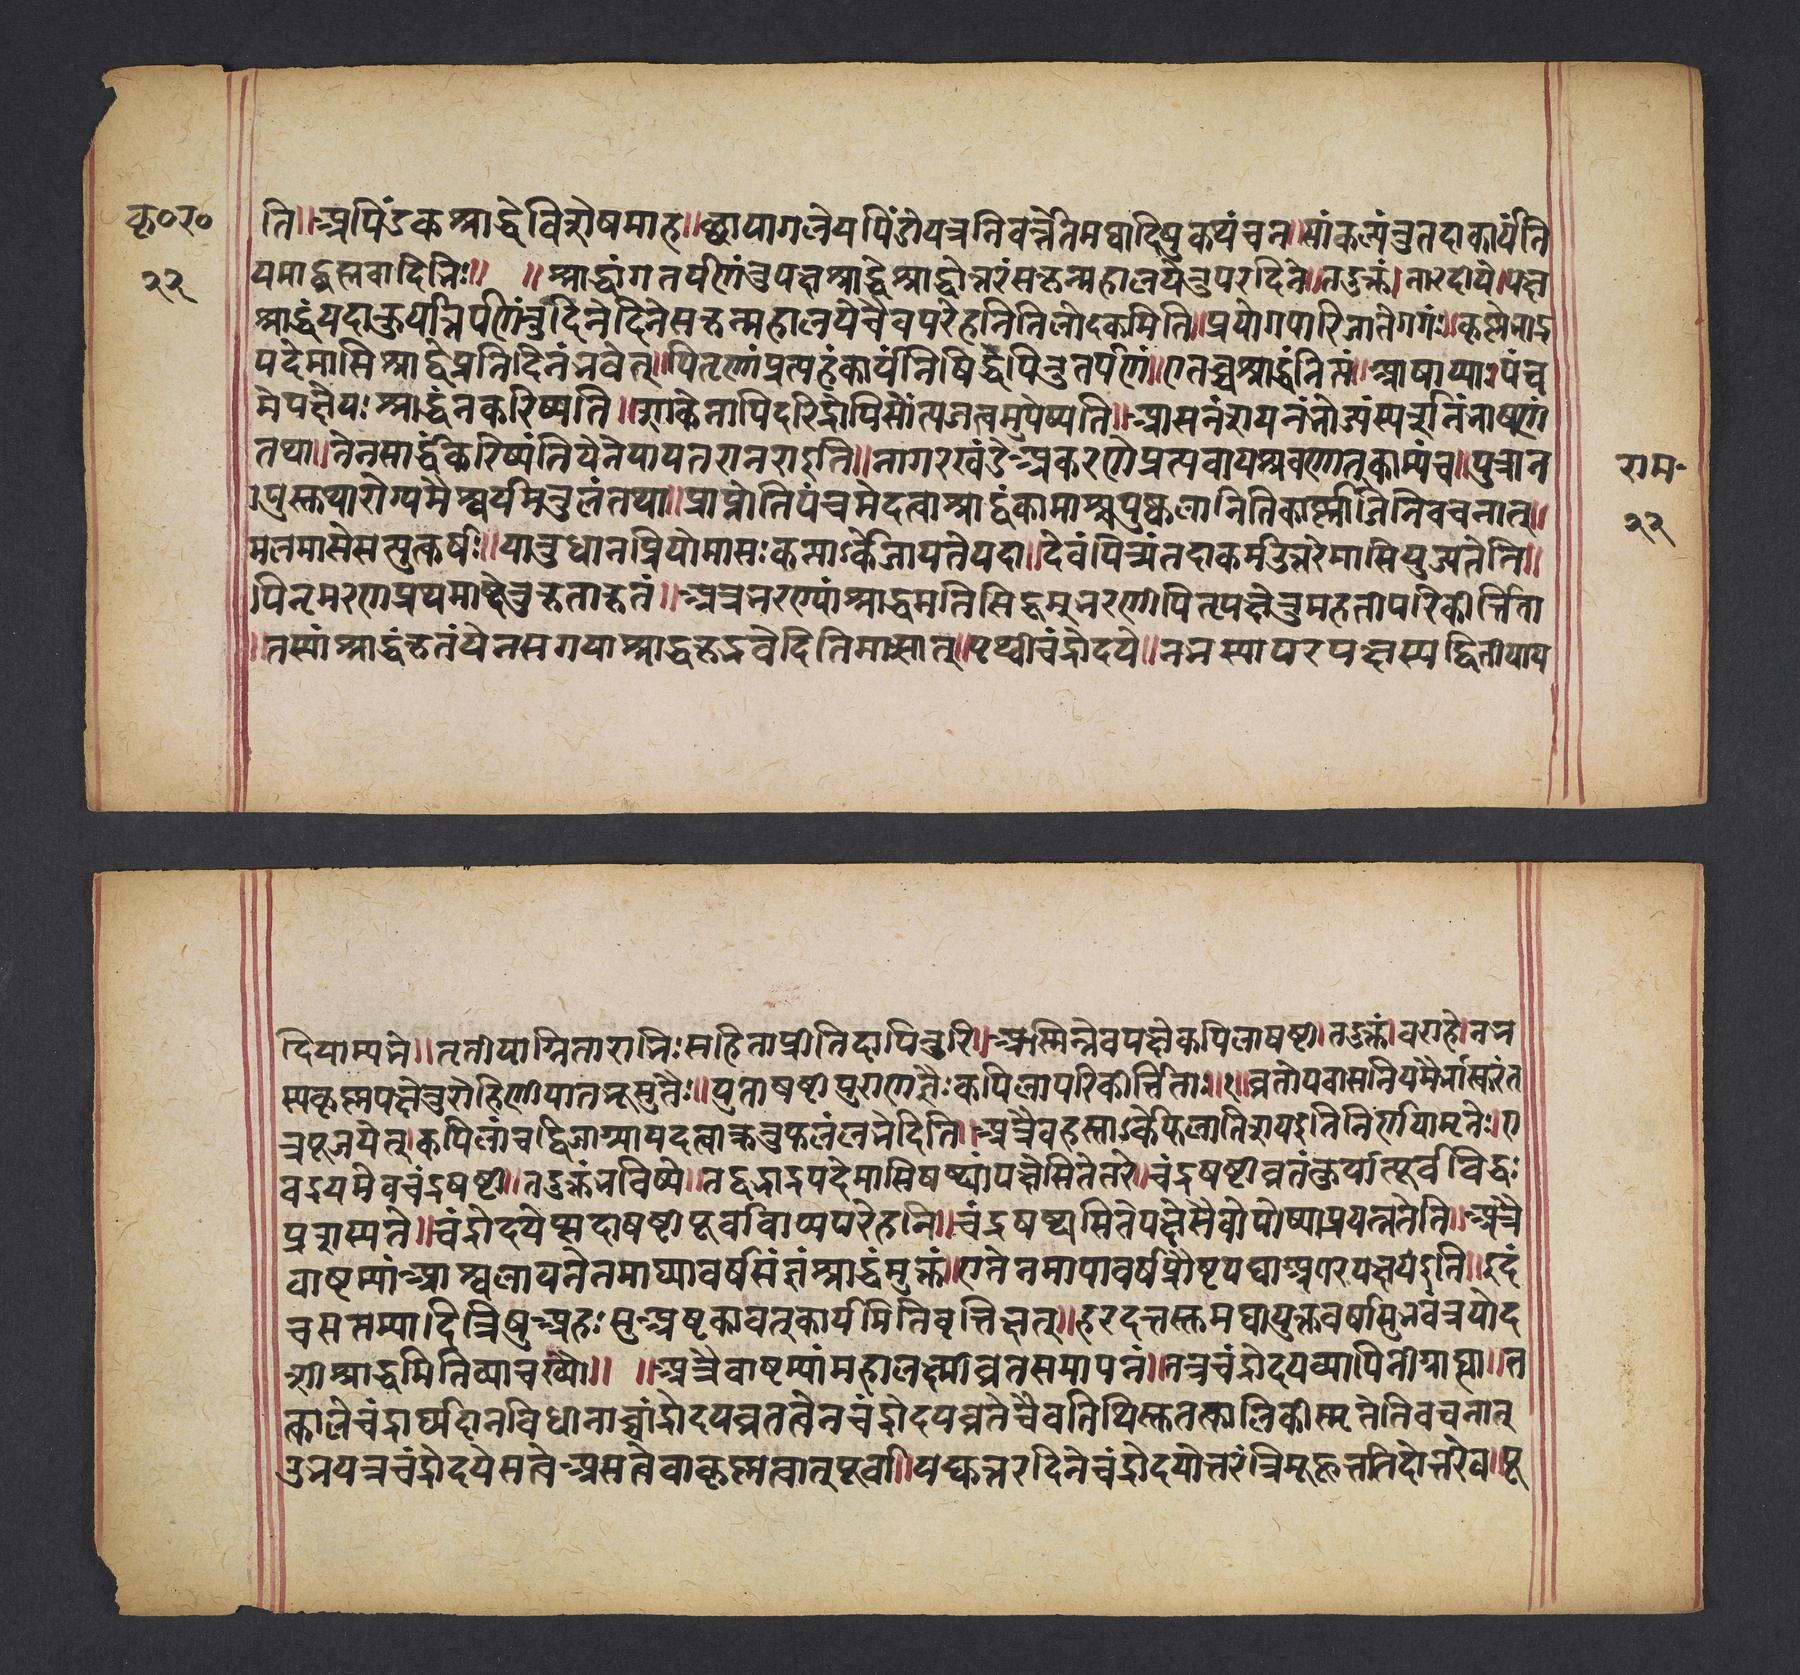 कृ०र०
२२
ति॥अपिंडकश्राद्धेविशेषमाह॥छायागजेयपिंडोयत्रनिवर्त्तेतमघादिषुकथंचन॥सांकल्पंतुतदाकार्यंनि
यमाद्ब्रह्मवादिभिः॥ ॥श्राद्धांगतर्पणंतुपक्षश्राद्धेश्राद्धोत्तरंसकृन्महालयेतुपरदिने॥तदुक्तं।नारदीये।पक्ष
श्राद्धंयदाकुर्यात्तर्पणंतुदिनेदिनेसकृन्महालयेचैवपरेहनितिलोदकमिति॥प्रयोगपारिजातेगर्गः॥कृष्णेभाद्र
पदेमासिश्राद्धंप्रतिदिनंभवेत्॥पितृणांप्रत्यहंकार्यंनिषिद्धेपितुतर्पणं॥एतच्चश्राद्धंनित्यं॥आषाढ्याःपंच
मेपक्षेयःश्राद्धंनकरिष्यति॥शाकेनापिदरिद्रोपिसोंत्यजत्वमुपेष्यति॥आसनंशयनंभोज्यंस्पर्शनंभाषणं
तथा॥तेनसार्द्धंकरिष्यंतियेतेपापतरानराइति॥नागरखंडेअकरणेप्रत्यवायश्रवणात्काम्यंच॥पुत्रान
पुस्तथारोग्यमैश्वर्यमतुलंतथा॥प्राप्नोतिपंचमेदत्वाश्राद्धंकामाश्चपुष्कलानितिकार्ष्णाजिनिवचनात्॥
मलमासेसत्युत्कर्षः॥यातुधानप्रियोमासःकन्यार्केजायतेयदा॥दैवंपित्र्यंतदाकर्मउत्तरेमासियुज्यतेति॥
पितृमरणप्रथमाब्देतुकृताकृतं॥अत्रभरण्यांश्राद्धमतिसिद्धमुभरणीपितृपक्षेतुमहतीपरिकीर्त्तिता
॥तस्यांश्राद्धंकृतंयेनसगयाश्राद्धकृद्भवेदितिमात्स्यात्॥पृथ्वीचंद्रोदये॥नभस्यापरपक्षस्यद्वितीयाय
राम॰
२२
दियाम्यभे॥तृतीयाग्नितारात्रिःसहिताप्रीतिदापितुरि॥अस्मिन्नेवपक्षेकपिलाषष्टी।तदुक्तं।वराहे।नभ
स्यकृष्णपक्षेतुरोहिणीपातभूसुतैः॥युताषष्टीपुराणज्ञैःकपिलापरिकीर्त्तिताः॥१॥व्रतोपवासनियमैर्भास्करंत
त्रपूजयेत्।कपिलांचद्विजाग्र्यायदत्वाक्रतुफलंलभेदिति॥अत्रैवहस्तार्केफलातिशयइतिनिर्णयामृते॥ए
वइयमेवचंद्रषष्टी॥तदुक्तंभविष्ये॥तद्वद्भाद्रपदेमासिषष्ठ्यांपक्षेसितेतरे॥चंद्रषष्टीव्रतंकुर्यात्पूर्वविद्धः
प्रशस्यते॥चंद्रोदयेप्सदाषष्टीपूर्ववाप्यपरेहनि॥चंद्रषष्ट्यासितेपक्षेसैवोपोष्याप्रयत्नतेति॥अत्रै
वाष्टम्यांआश्वलायनेतमाघ्यावर्षसंज्ञंश्राद्धंमुक्तं॥एतेनमाघावर्षप्रौष्टपद्याअपरपक्षयइति॥इदं
चसप्तम्यादित्रिषुअहःसुअष्टकावत्कार्यमितिवृत्तिकृत्॥हरदत्तस्तुमघायुक्तवर्षासुभवंत्रयोद
शीश्राद्धमितिव्याचख्यौ॥ ॥अत्रैवाष्टम्यांमहालक्ष्मीव्रतसमापनं॥तत्रचंद्रोदयव्यापिनीग्राह्या॥त
त्कालेचंद्रार्घ्यदानविधानाच्चांद्रोदयव्रतत्वेनचंद्रोदयव्रतेचैवतिथिस्तत्कालिकीस्मृतेतिवचनात्
उभयत्रचंद्रोदयेसत्वेअसत्वेवाकृष्णत्वात्पूर्वा॥यद्युत्तरदिनेचंद्रोदयोत्तरंत्रिमुहूर्त्तातदोत्तरेव॥पू